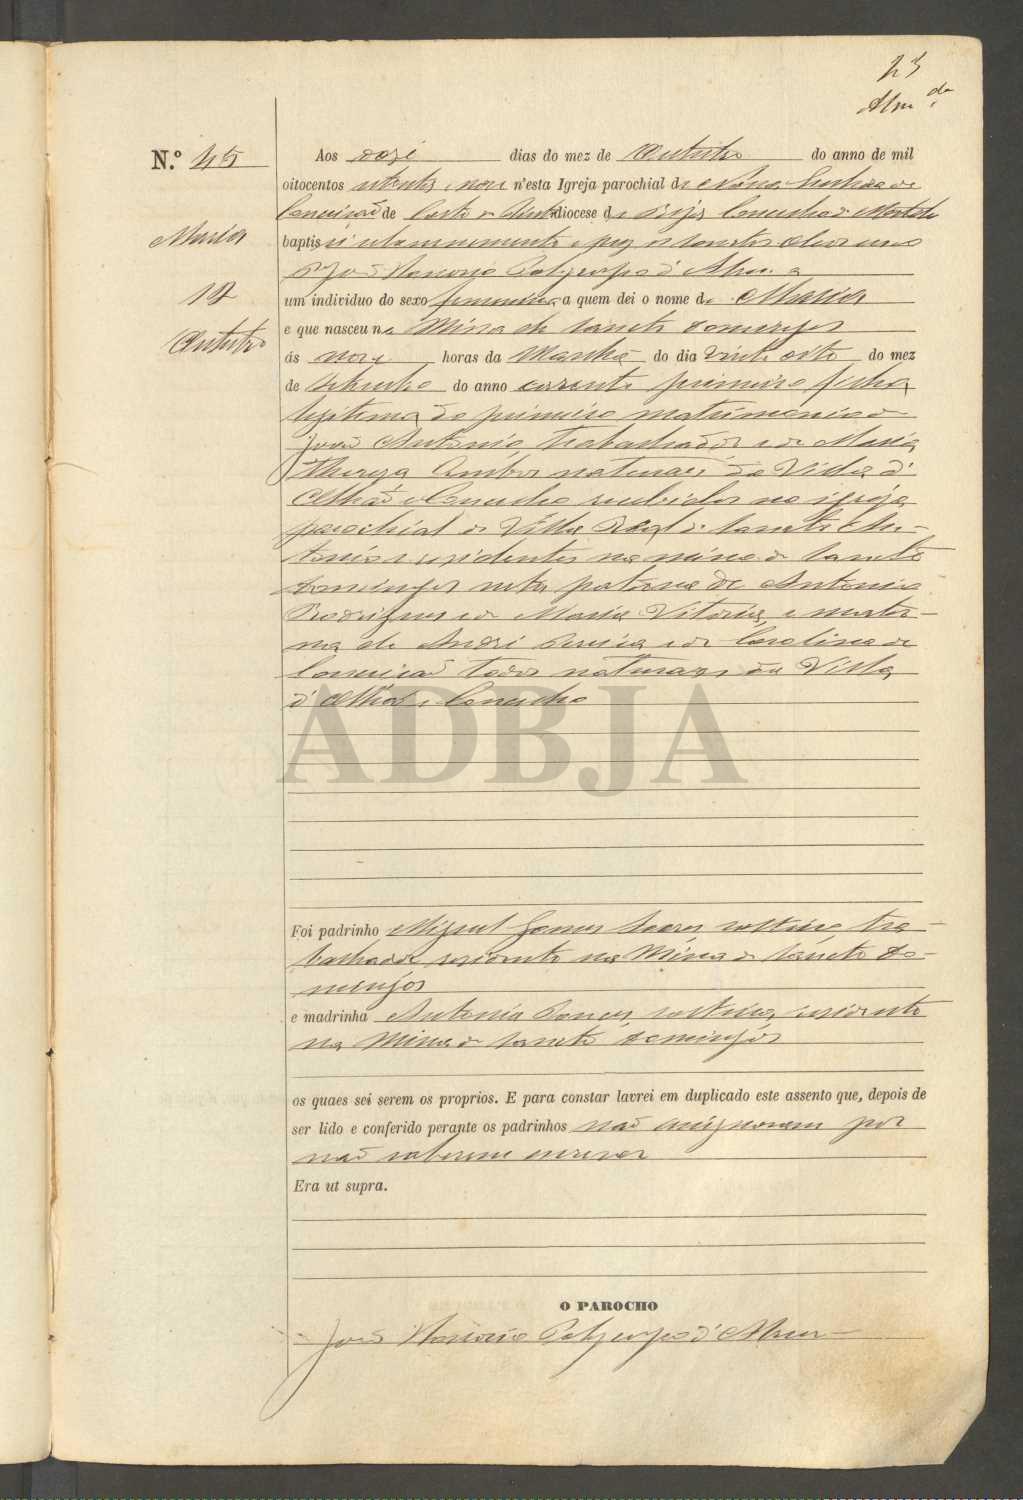 23
N.º 45
Aos doze dias do mez de Outubro do anno de mil
oitocentos oitenta e nove n'esta Igreja parochial de Nossa Senhora da
Conceição de diocese de Beja Concelho de Mertola
baptisei solemnemente e puz os sanctos oleos
Maria
12
Outubro
um individuo do sexo femenino a quem dei o nome de Maria
e que nasceu na Mina de Sancto Domingos
ás nove horas da Manhã do dia vinte oito do mez
de Setembro do anno corrente primeira filha
legitima do primeiro matrimonio de
João Antonio, trabalhador e de Maria
Thereza Ambos naturaes da Villa d'
Olhão e Concelho recebidos na igreja
parochial de Villa Real de Sancto An-
tonio e residentes na mina de Sancto
Domingos neta paterna de Antonio
Rodrigues e de Maria Vitoria, e mater-
na de André Pereira e de Carolina da
Conceição todos naturaes da Villa
d'Olhão e Concelho
ADBJA
Foi padrinho Miguel Gomes Soares solteiro, tra-
balhador residente na Mina de Sancto Do-
mingos
e madrinha Antonia solteira, residente
na Mina de Sancto Domingos
os quaes sei serem os proprios. E para constar lavrei em duplicado este assento que, depois de
ser lido e conferido perante os padrinhos não assignaram por
não saberem escrever
Era ut supra.
O PAROCHO
João